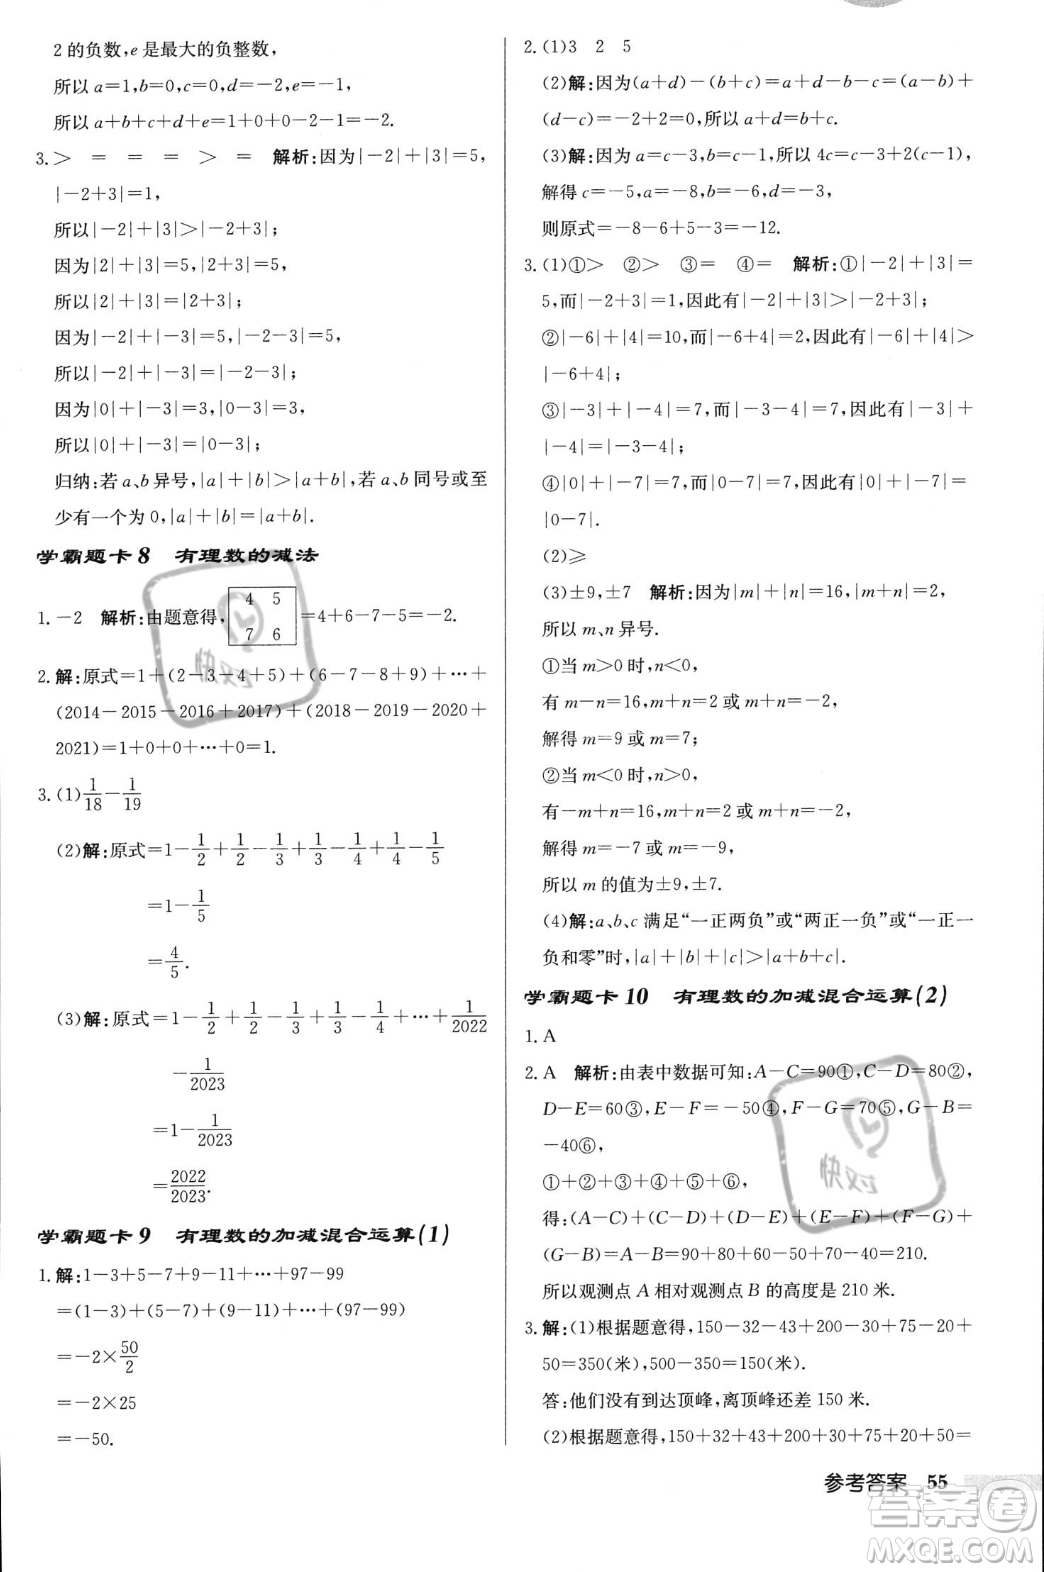 2 的负数,e 是最大的负整数,
所以 a=1,b=0,c=0,d=-2,e=-1,
所以 a+b+c+d+e=1+0+0-2-1=-2.
3. > = = = > = 解析:因为|-2|+|3|=5,
|-2+3|=1,
所以|-2|+|3|>|-2+3|;
因为|2|+|3|=5,|2+3|=5,
所以|2|+|3|=|2+3|;
因为|-2|+|-3|=5,|-2-3|=5,
所以|-2|+|-3|=|-2-3|;
因为|0|+|-3|=3,|0-3|=3,
所以|0|+|-3|=|0-3|;
归纳:若 a、b 异号,|a|+|b|>|a+b|,若 a、b 同号或至
少有一个为 0,|a|+|b|=|a+b|.
学霸题卡 8 有理数的减法
1. -2 解析:由题意得, 4 5 7 6 =4+6-7-5=-2.
2. 解:原式=1+(2-3-4+5)+(6-7-8+9)+…+
(2014-2015-2016+2017)+(2018-2019-2020+
2021)=1+0+0+…+0=1.
3. (1) 1/18 - 1/19
(2)解:原式=1-1/2+1/2-1/3+1/3-1/4+1/4-1/5
=1-1/5
=4/5.
(3)解:原式=1-1/2+1/2-1/3+1/3-1/4+…+1/2022
-1/2023
=1-1/2023
=2022/2023.
学霸题卡 9 有理数的加减混合运算(1)
1. 解:1-3+5-7+9-11+…+97-99
=(1-3)+(5-7)+(9-11)+…+(97-99)
=-2×50/2
=-2×25
=-50.
2. (1)3 2 5
(2)解:因为(a+d)-(b+c)=a+d-b-c=(a-b)+
(d-c)=-2+2=0,所以 a+d=b+c.
(3)解:因为 a=c-3,b=c-1,所以 4c=c-3+2(c-1),
解得 c=-5,a=-8,b=-6,d=-3,
则原式=-8-6+5-3=-12.
3. (1)①> ②> ③= ④= 解析:①|-2|+|3|=
5,而|-2+3|=1,因此有|-2|+|3|>|-2+3|;
②|-6|+|4|=10,而|-6+4|=2,因此有|-6|+|4|>
|-6+4|;
③|-3|+|-4|=7,而|-3-4|=7,因此有|-3|+
|-4|=|-3-4|;
④|0|+|-7|=7,而|0-7|=7,因此有|0|+|-7|=
|0-7|.
(2)≥
(3)±9,±7 解析:因为|m|+|n|=16,|m+n|=2,
所以 m、n 异号.
①当 m>0 时,n<0,
有 m-n=16,m+n=2 或 m+n=-2,
解得 m=9 或 m=7;
②当 m<0 时,n>0,
有-m+n=16,m+n=2 或 m+n=-2,
解得 m=-7 或 m=-9,
所以 m 的值为±9,±7.
(4)解:a、b、c 满足“一正两负”或“两正一负”或“一正一
负和零”时,|a|+|b|+|c|>|a+b+c|.
学霸题卡 10 有理数的加减混合运算(2)
1. A
2. A 解析:由表中数据可知:A-C=90①,C-D=80②,
D-E=60③,E-F=-50④,F-G=70⑤,G-B=
-40⑥,
①+②+③+④+⑤+⑥,
得:(A-C)+(C-D)+(D-E)+(E-F)+(F-G)+
(G-B)=A-B=90+80+60-50+70-40=210.
所以观测点 A 相对观测点 B 的高度是 210 米.
3. 解:(1)根据题意得,150-32-43+200-30+75-20+
50=350(米),500-350=150(米).
答:他们没有到达顶峰,离顶峰还差 150 米.
(2)根据题意得,150+32+43+200+30+75+20+50=
参考答案 55
快对
快对
答案卷
MXQE.COM